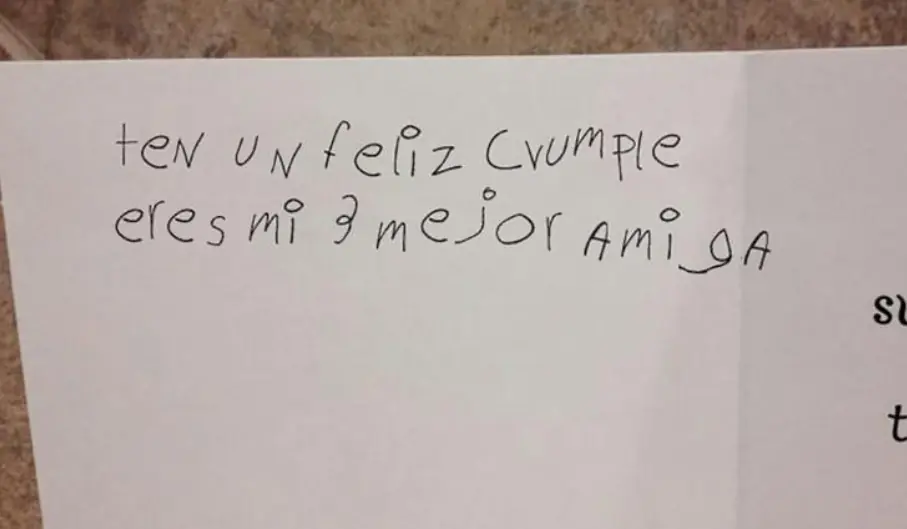 ten un feliz crumple
eres mi 3 mejor amiga
su
t